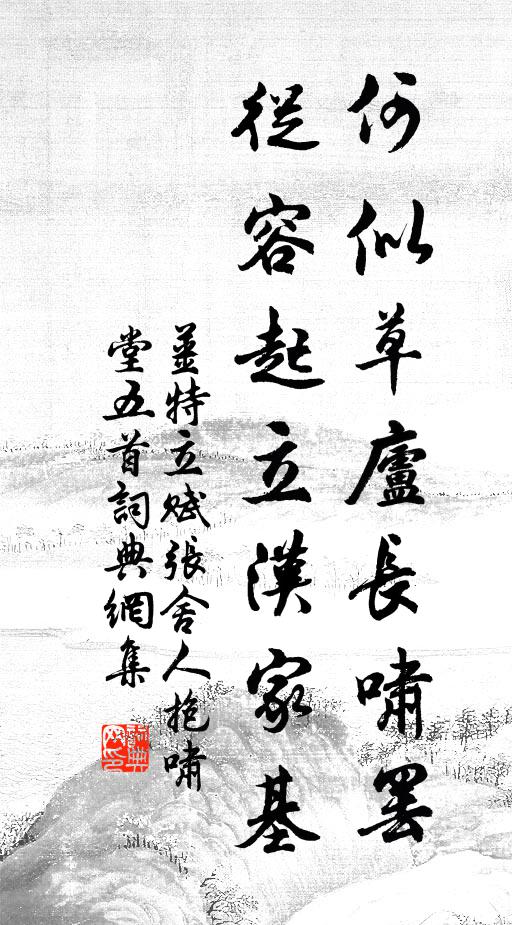 何似草廬長嘯罷
從容起立漢家基
薑特立賦張舍人抱嘯
堂五首詞典網集